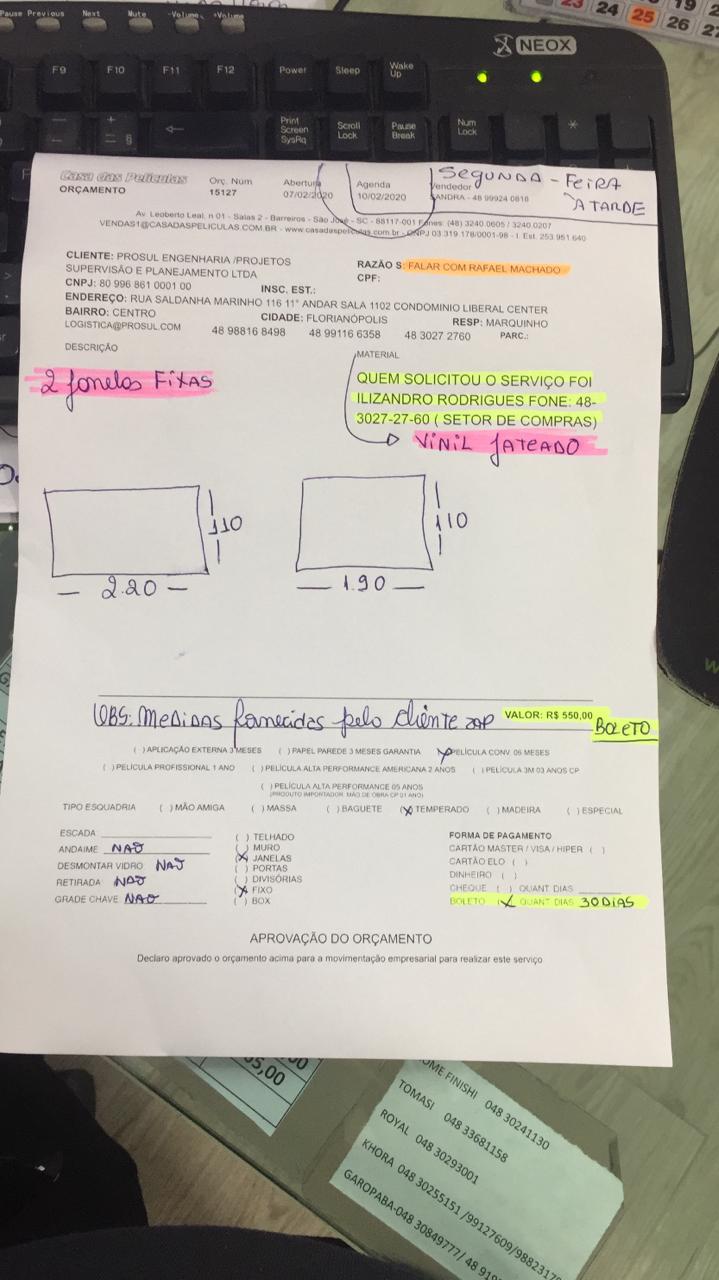 Pause Previous Next Mute -Volume +Volume
23 24 25 26 27
19
NEOX
F9 F10 F11 F12 Power Sleep Wake Up
Print Screen SysRq Scroll Lock Pause Break Num Lock
Casa das Películas
ORÇAMENTO
Orç. Num
15127
Abertura
07/02/2020
Agenda
10/02/2020
Vendedor
SANDRA - 48 99924 0818
SEGUNDA - FEIRA
A TARDE
Av. Leoberto Leal, n 01 - Salas 2 - Barreiros - São José - SC - 88117-001 Fones: (48) 3240.0605 / 3240.0207
VENDAS1@CASADASPELICULAS.COM.BR - www.casadaspeliculas.com.br - CNPJ 03.319.178/0001-98 - I. Est. 253.951.640
CLIENTE: PROSUL ENGENHARIA /PROJETOS
SUPERVISÃO E PLANEJAMENTO LTDA
RAZÃO S: FALAR COM RAFAEL MACHADO
CPF:
CNPJ: 80 996 861 0001 00 INSC. EST.:
ENDEREÇO: RUA SALDANHA MARINHO 116 11° ANDAR SALA 1102 CONDOMINIO LIBERAL CENTER
BAIRRO: CENTRO CIDADE: FLORIANÓPOLIS RESP: MARQUINHO
LOGISTICA@PROSUL.COM 48 98816 8498 48 99116 6358 48 3027 2760 PARC.:
DESCRIÇÃO
MATERIAL
2 janelas FIXAS
QUEM SOLICITOU O SERVIÇO FOI
ILIZANDRO RODRIGUES FONE: 48-
3027-27-60 ( SETOR DE COMPRAS)
VINIL JATEADO
110
2.20
110
1.90
OBS: MEDIDAS fornecidas pelo cliente zap
VALOR: R$ 550,00
BOLETO
( ) APLICAÇÃO EXTERNA 3 MESES ( ) PAPEL PAREDE 3 MESES GARANTIA (X) PELÍCULA CONV 06 MESES
( ) PELÍCULA PROFISSIONAL 1 ANO ( ) PELÍCULA ALTA PERFORMANCE AMERICANA 2 ANOS ( ) PELÍCULA 3M 03 ANOS CP
( ) PELÍCULA ALTA PERFORMANCE 05 ANOS
(PRODUTO IMPORTADOR, MÃO DE OBRA CP 01 ANO)
TIPO ESQUADRIA ( ) MÃO AMIGA ( ) MASSA ( ) BAGUETE (X) TEMPERADO ( ) MADEIRA ( ) ESPECIAL
ESCADA
ANDAIME NAÕ
DESMONTAR VIDRO NAÕ
RETIRADA NAÕ
GRADE CHAVE NAÕ
( ) TELHADO
( ) MURO
(X) JANELAS
( ) PORTAS
( ) DIVISÓRIAS
(X) FIXO
( ) BOX
FORMA DE PAGAMENTO
CARTÃO MASTER / VISA / HIPER ( )
CARTÃO ELO ( )
DINHEIRO ( )
CHEQUE ( ) QUANT DIAS
BOLETO (X) QUANT DIAS 30 DIAS
APROVAÇÃO DO ORÇAMENTO
Declaro aprovado o orçamento acima para a movimentação empresarial para realizar este serviço
05,00
OME FINISHI 048 30241130
TOMASI 048 33681158
ROYAL 048 30293001
KHORA 048 30255151 /99127609/9882317
GAROPABA-048 30849777/ 48 919